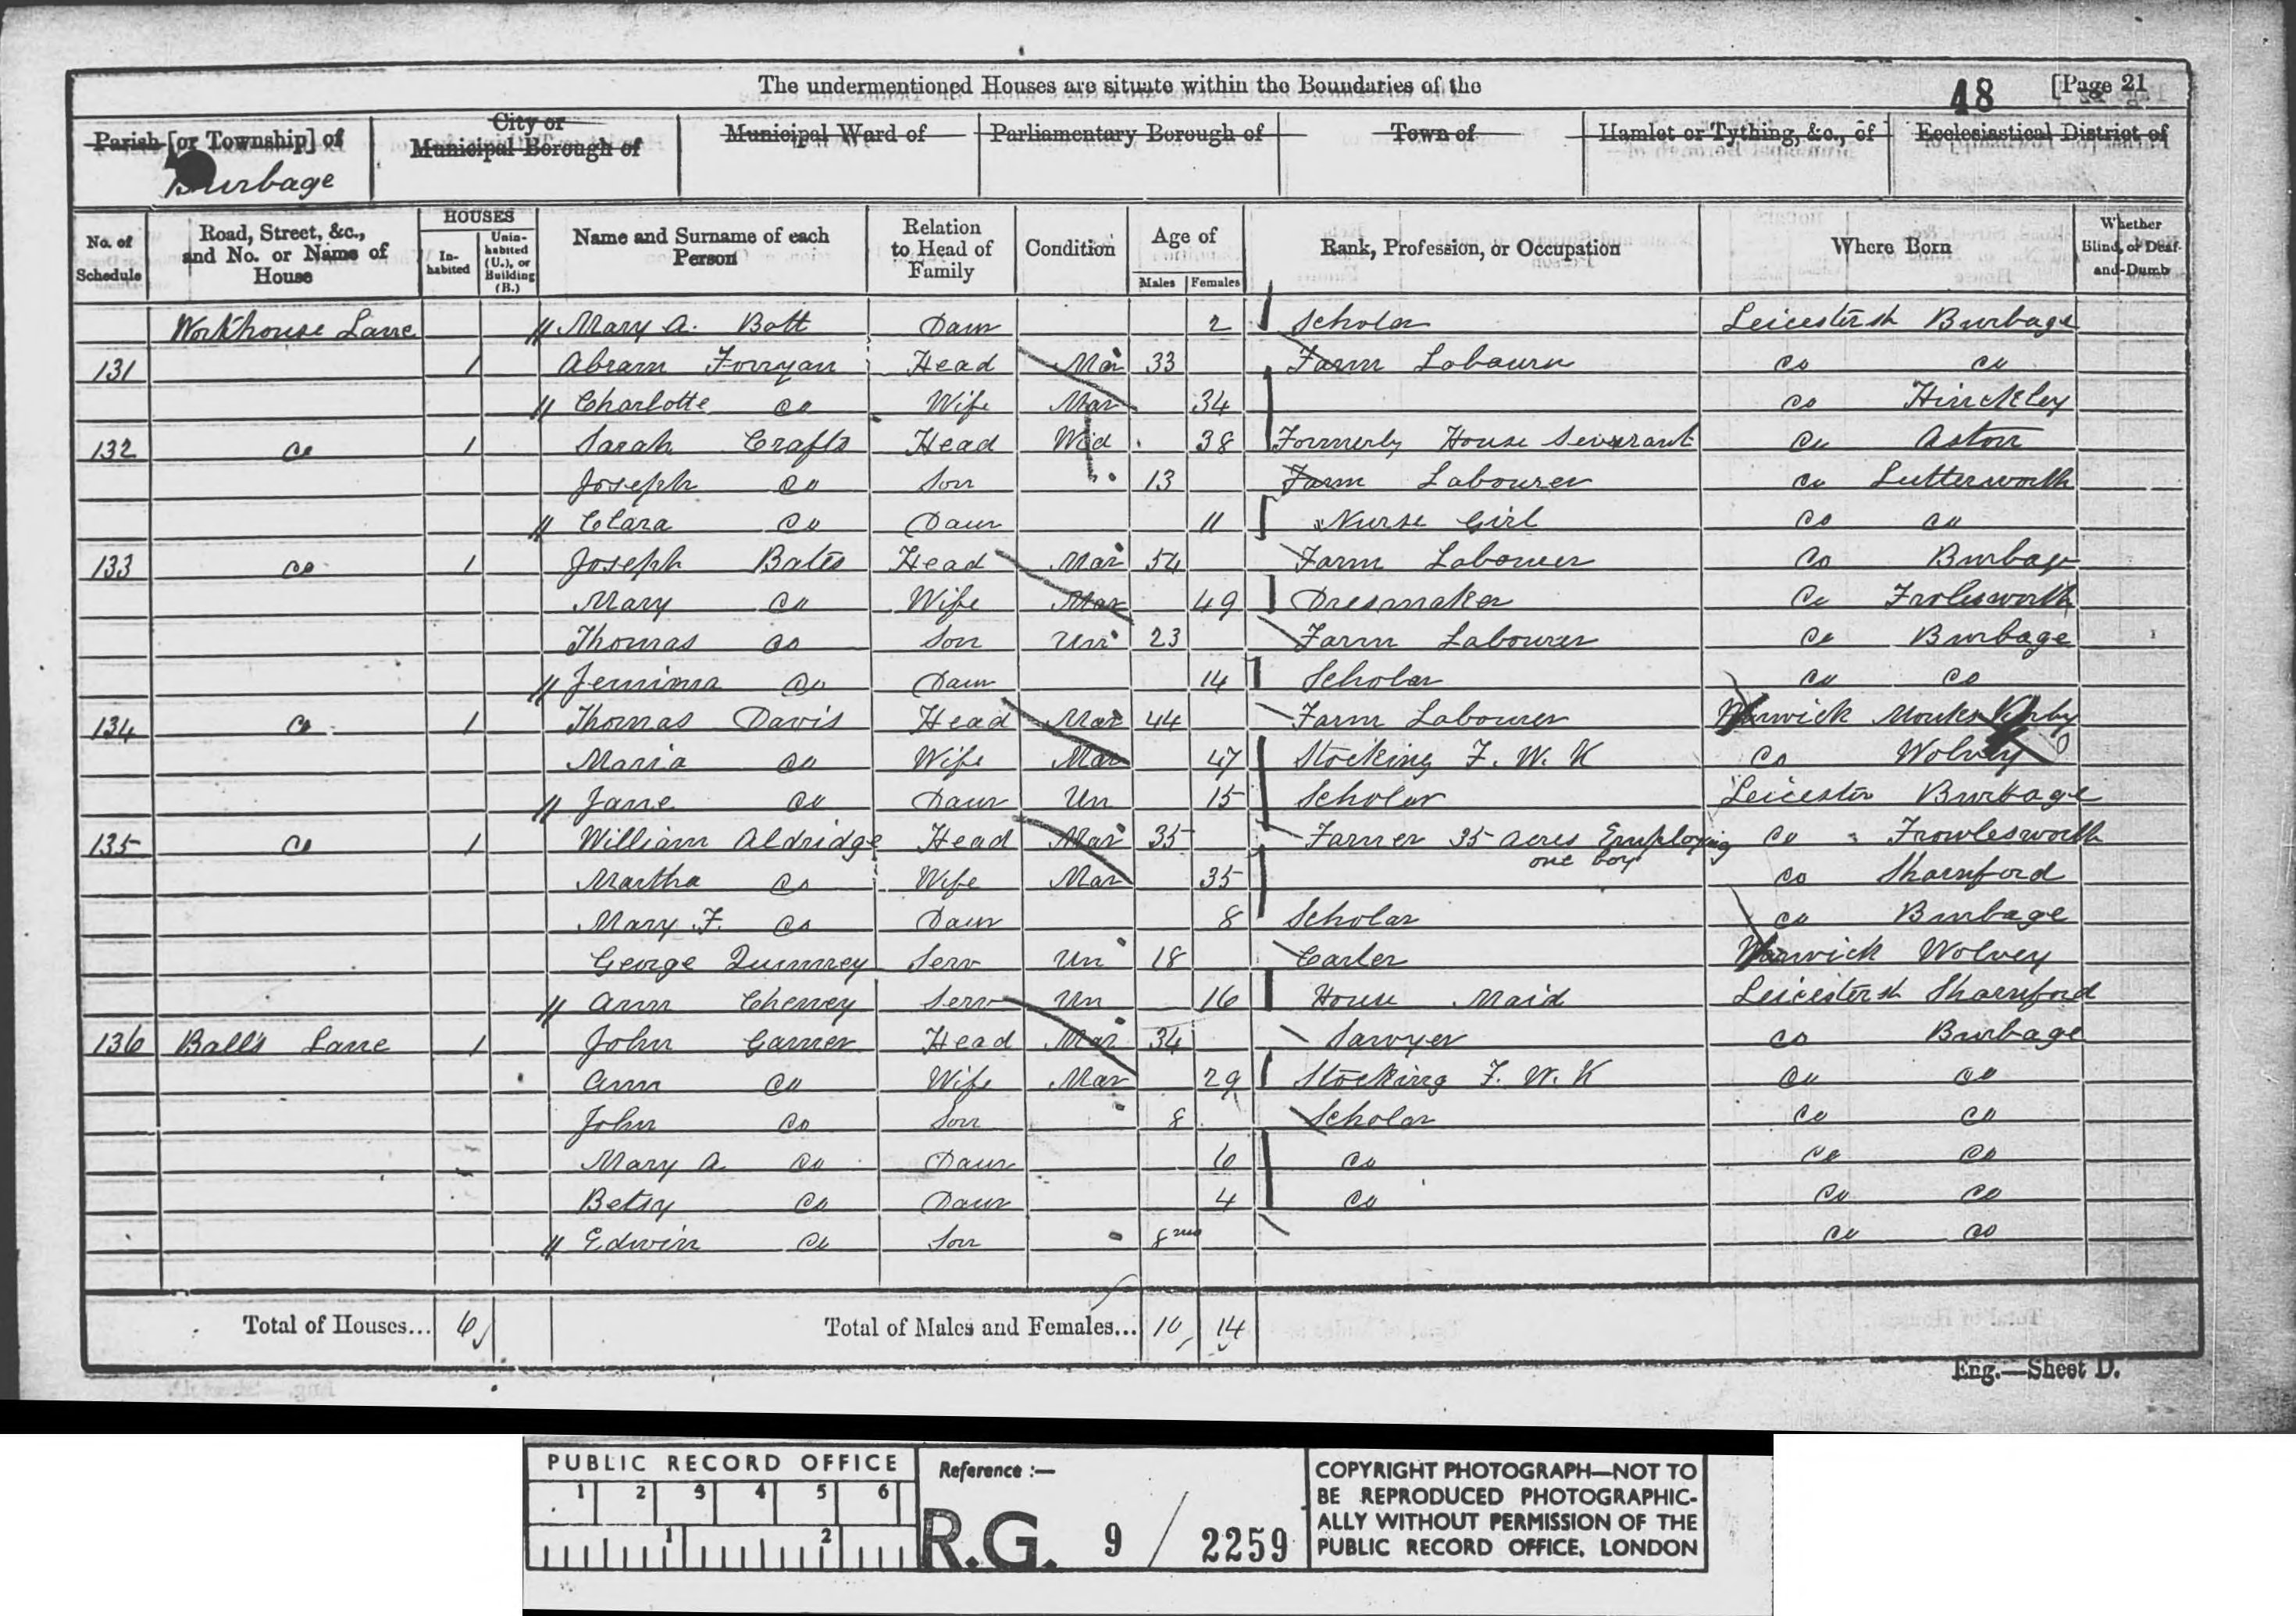 The undermentioned Houses are situate within the Boundaries of the
48 [Page 21
Parish [or Township] of
City or Municipal Borough of
Municipal Ward of
Parliamentary Borough of
Town of
Hamlet or Tything, &c., of
Ecclesiastical District of
Burbage
No. of Schedule
Road, Street, &c., and No. or Name of House
HOUSES
In-habited
Unin-habited (U.), or Building (B.)
Name and Surname of each Person
Relation to Head of Family
Condition
Age of
Males Females
Rank, Profession, or Occupation
Where Born
Whether Blind, or Deaf-and-Dumb
Workhouse Lane // Mary A. Bott Daur 2 Scholar Leicestersh Burbage
131 1 Abram Forryan Head Mar 33 Farm Labourer Do Do
// Charlotte Do Wife Mar 34 Do Hinckley
132 Do 1 Sarah Crafts Head Wid 38 Formerly House Servant Do Aston
Joseph Do Son 13 Farm Labourer Do Lutterworth
// Clara Do Daur 11 Nurse Girl Do Do
133 Do 1 Joseph Bates Head Mar 54 Farm Labourer Do Burbage
Mary Do Wife Mar 49 Dresmaker Do Frolesworth
Thomas Do Son Un 23 Farm Labourer Do Burbage
// Jemima Do Daur 14 Scholar Do Do
134 Do 1 Thomas Davis Head Mar 44 Farm Labourer Warwick Monks Kirby
Maria Do Wife Mar 47 Stocking F. W. K Do Wolvey
// Jane Do Daur Un 15 Scholar Leicester Burbage
135 Do 1 William Aldridge Head Mar 35 Farmer 35 acres Employing one boy Do Frowlesworth
Martha Do Wife Mar 35 Do Sharnford
Mary F. Do Daur 8 Scholar Do Burbage
George Serv Un 18 Carter Warwick Wolvey
// Ann Cheney Serv Un 16 House Maid Leicestersh Sharnford
136 Ball's Lane 1 John Garner Head Mar 34 Sawyer Do Burbage
Ann Do Wife Mar 29 Stocking F. W. K Do Do
John Do Son 8 Scholar Do Do
Mary A Do Daur 6 Do Do Do
Betsy Do Daur 4 Do Do Do
// Edwin Do Son 8 mo Do Do
Total of Houses... 6
Total of Males and Females... 10 14
Eng.—Sheet D.
PUBLIC RECORD OFFICE
1 2 3 4 5 6
1 2
Reference :—
R.G. 9 / 2259
COPYRIGHT PHOTOGRAPH—NOT TO
BE REPRODUCED PHOTOGRAPHIC-
ALLY WITHOUT PERMISSION OF THE
PUBLIC RECORD OFFICE, LONDON